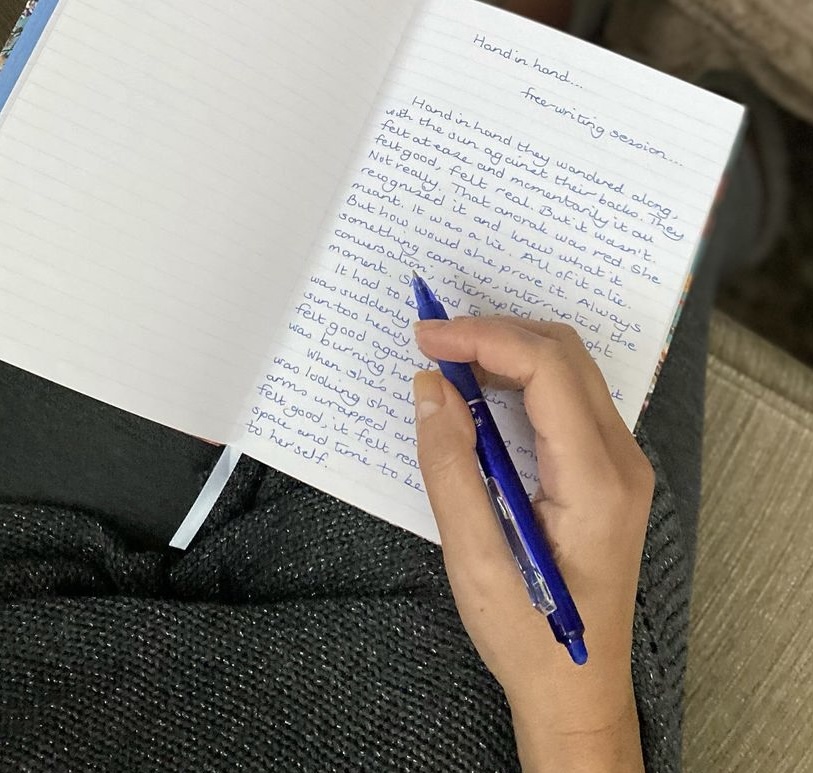 Hand in hand...
free-writing session...
Hand in hand they wandered along,
with the sun against their backs. They
felt at ease and momentarily it all
felt good, felt real. But it wasn't.
Not really. That anorak was red. She
recognised it and knew what it
meant. It was a lie. All of it a lie.
But how would she prove it. Always
something came up, interrupted the
conversation, interrupted the
moment. had to
It had to
was suddenly
sun too heavy it
felt good against
was burning her
When she's
was looking she
arms wrapped
felt good, it felt
space and time to be
to herself.